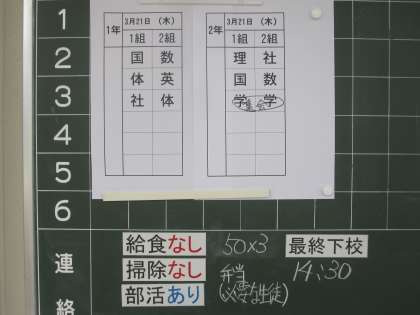 1
2
3
4
5
6
1年 3月21日 (木)
1組 2組
国 数
体 英
社 体
2年 3月21日 (木)
1組 2組
理 社
国 数
学 集会 学
連絡
給食なし 50×3 最終下校
掃除なし 弁当 14:30
部活あり (必要な生徒)